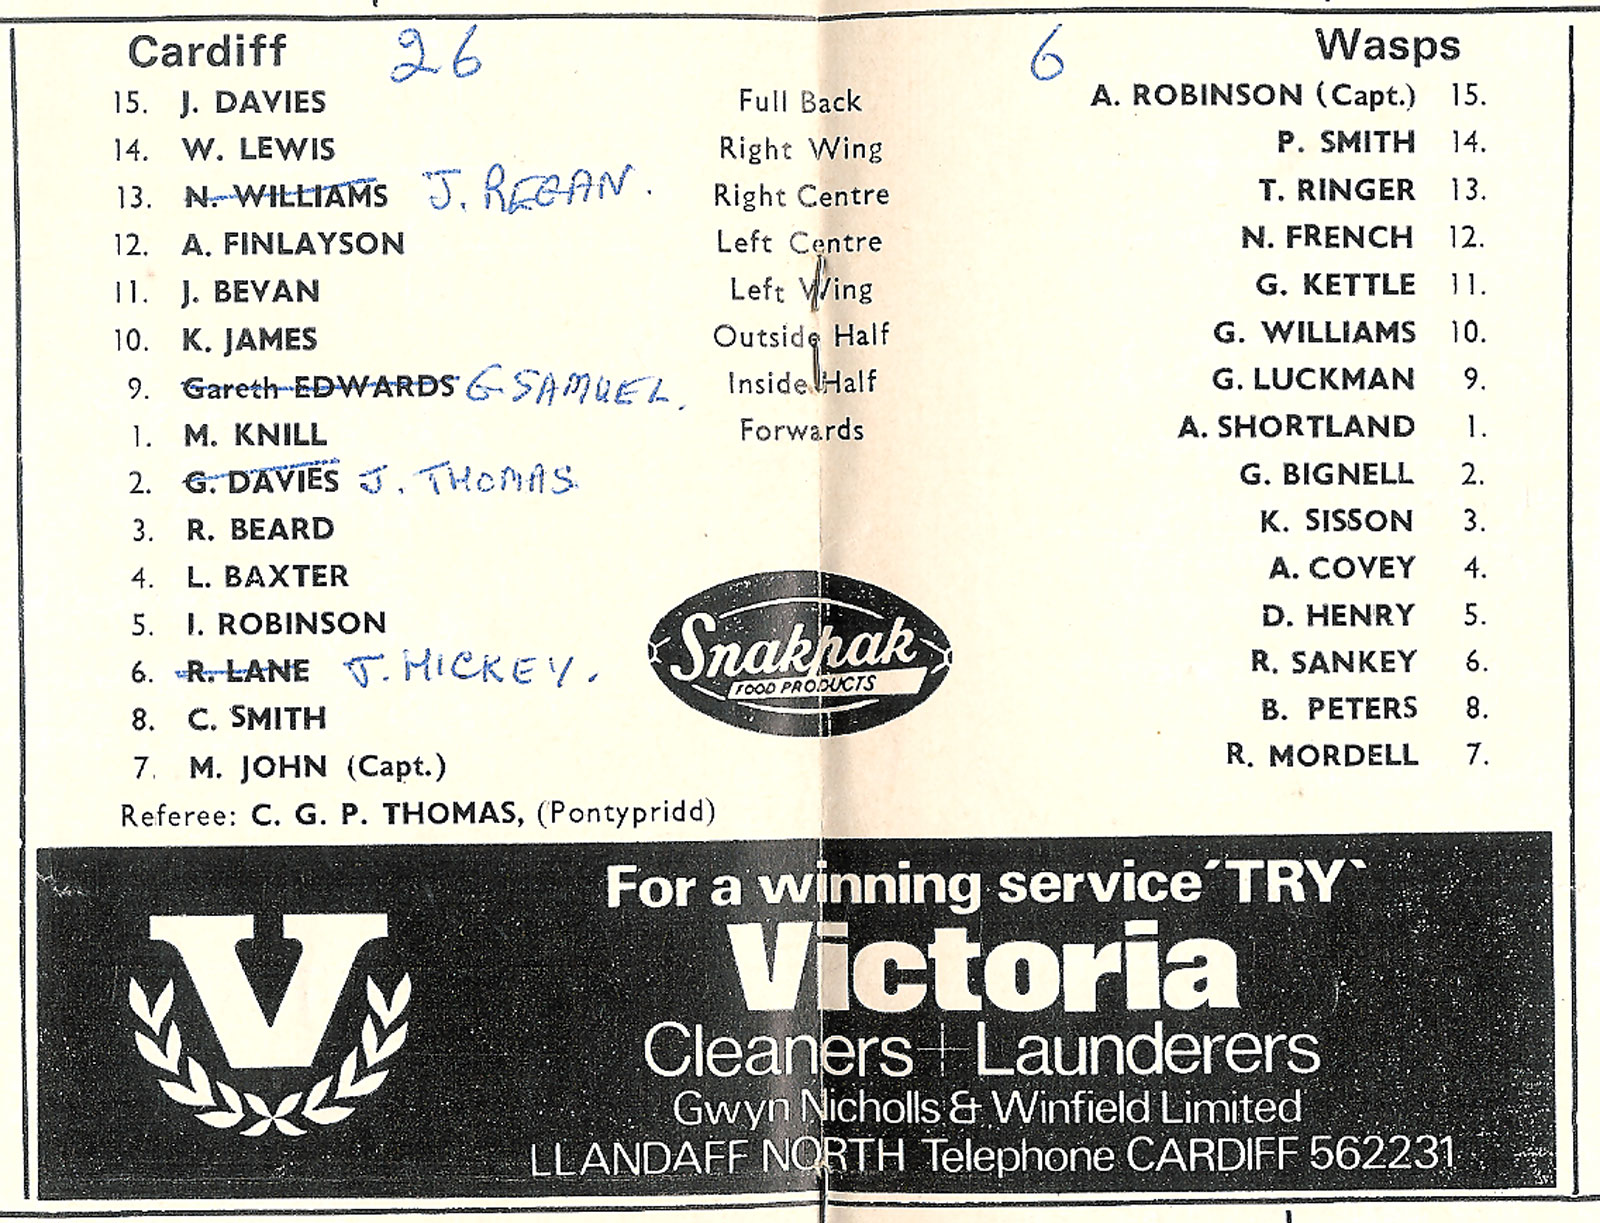 Cardiff 26 6 Wasps
15. J. DAVIES Full Back A. ROBINSON (Capt.) 15.
14. W. LEWIS Right Wing P. SMITH 14.
13. N. WILLIAMS J. REGAN. Right Centre T. RINGER 13.
12. A. FINLAYSON Left Centre N. FRENCH 12.
11. J. BEVAN Left Wing G. KETTLE 11.
10. K. JAMES Outside Half G. WILLIAMS 10.
9. Gareth EDWARDS G SAMUEL. Inside Half G. LUCKMAN 9.
1. M. KNILL Forwards A. SHORTLAND 1.
2. G. DAVIES J. THOMAS G. BIGNELL 2.
3. R. BEARD K. SISSON 3.
4. L. BAXTER A. COVEY 4.
5. I. ROBINSON D. HENRY 5.
6. R. LANE J. HICKEY. R. SANKEY 6.
8. C. SMITH B. PETERS 8.
7. M. JOHN (Capt.) R. MORDELL 7.
Referee: C. G. P. THOMAS, (Pontypridd)
Snakpak
FOOD PRODUCTS
For a winning service ´TRY`
V
Victoria
Cleaners + Launderers
Gwyn Nicholls & Winfield Limited
LLANDAFF NORTH Telephone CARDIFF 562231